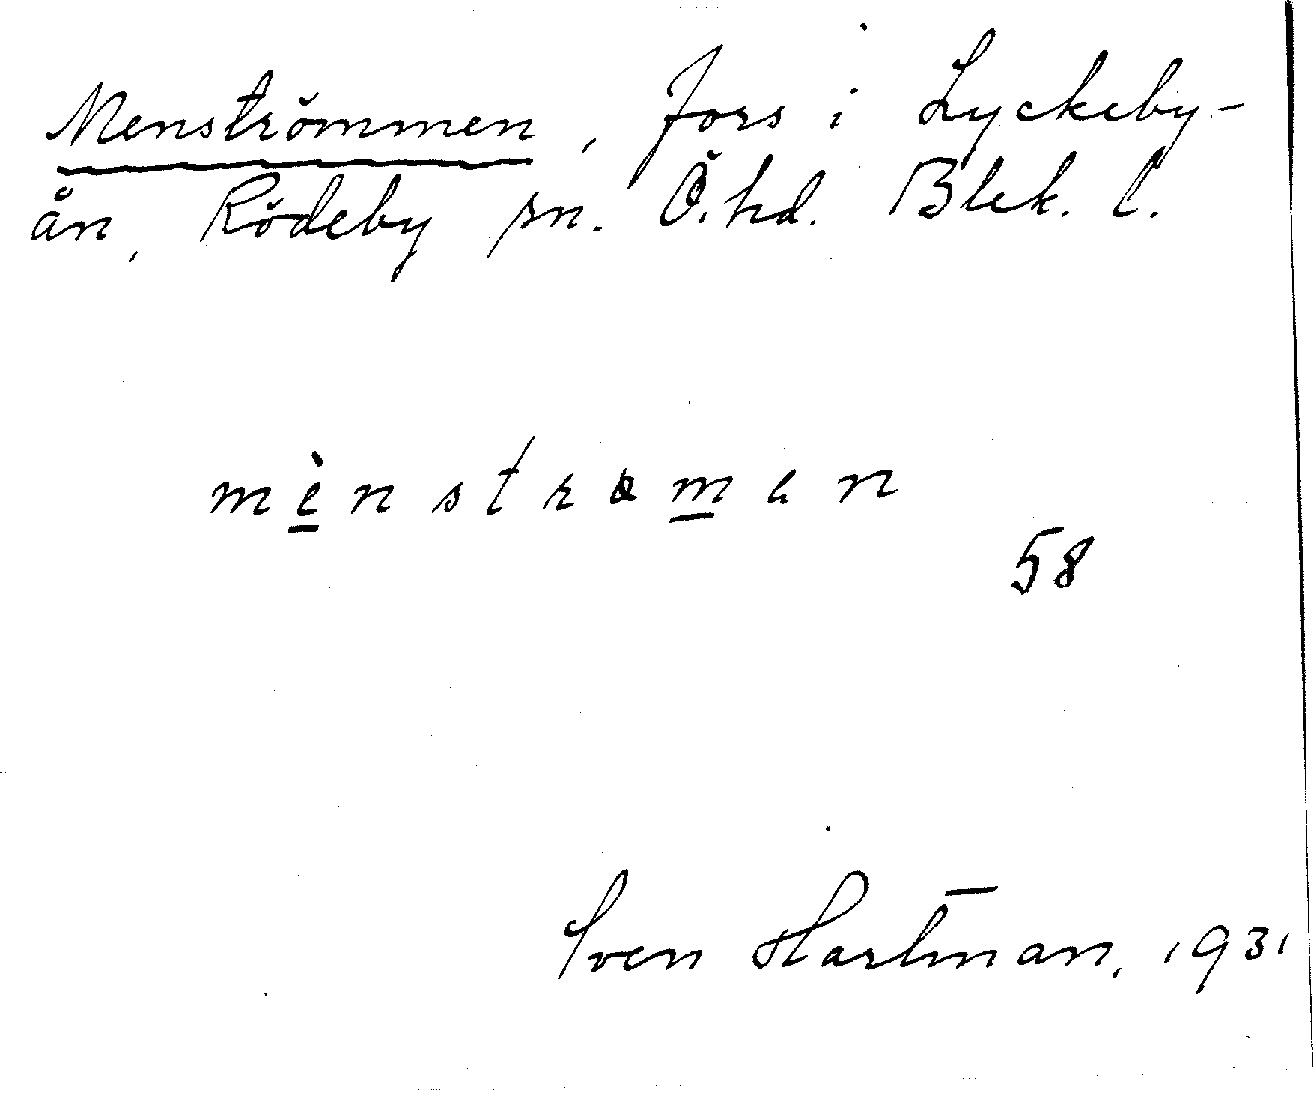 Menströmmen, fors i Lyckeby-
ån, Rödeby sn. Ö.hd. Blek. l.
mènstrɵmɘn
58
Sven Hartman, 1931